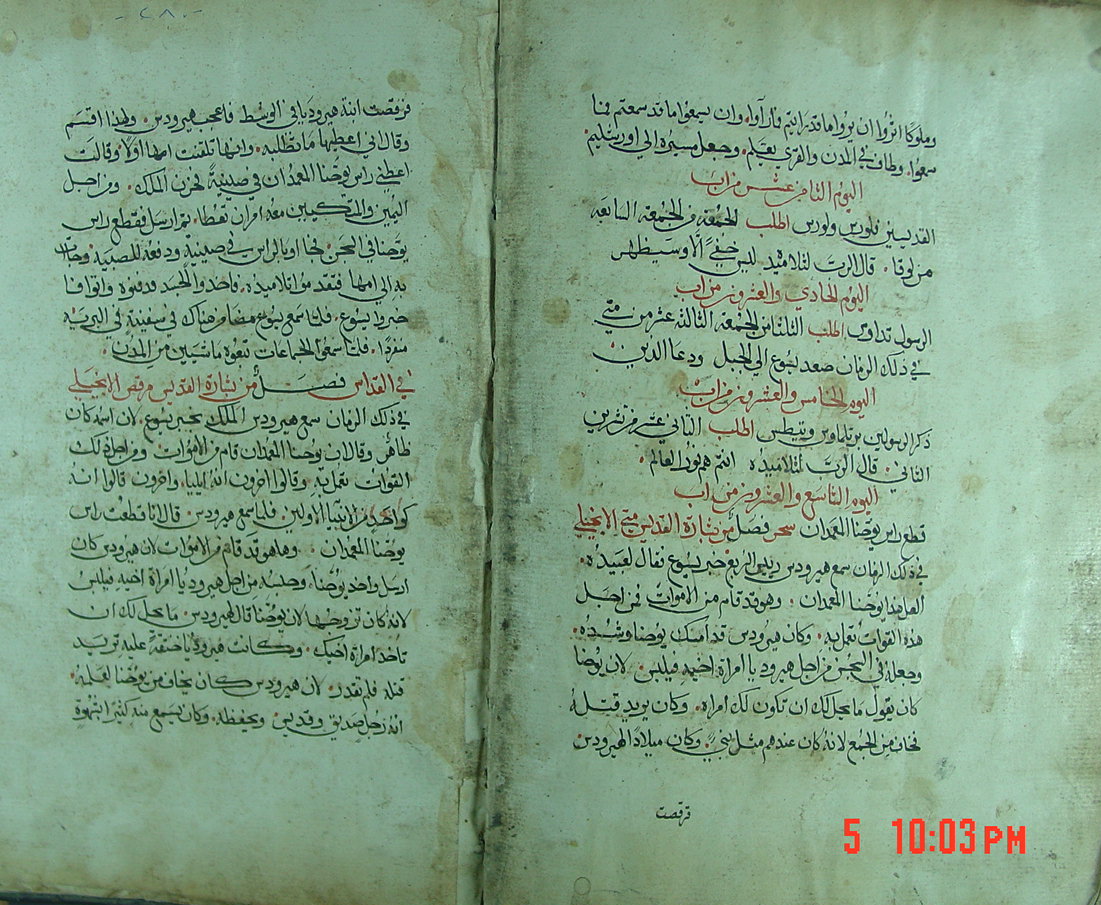 وملوكًا اثروا ان يروا ما قد رايتم فما رآوا، وان يسمعوا ما قد سمعتم فما
سمعوا. وطاف في المدن والقرى يعلم. وجعل مسيره الى اورشليم
اليوم الثامن عشر من اب
القديسين فلورس ولورس اطلب الجمعة من الجمعة السابعه
من لوقا. قال الرب لتلاميذه ليس خفيًّ الا وسيظهر
اليوم الحادي والعشرون من اب
الرسول تداوس اطلب الثلثا من الجمعة الثالثة عشر من متي
في ذلك الزمان صعد يسوع الي الجبل ودعا الذين
اليوم الخامس والعشرون من اب
ذكر الرسولين برتلماوس وتيطس اطلب الثاني عشر من تشرين
الثاني. قال الرب لتلاميذه انتم هم نور العالم.
اليوم التاسع والعشرون من اب
قطع راس يوحنا المعمدان سحر فصل من بشارة القديس متي الانجيلي
في ذلك الزمان سمع هيرودس رييس الربع خبر يسوع فقال لعبيده.
العل هذا يوحنا المعمدان. وهو قد قام من الاموات فمن اجل
هذه القوات تعمل به. وكان هيرودس قد امسك يوحنا وشده.
وجعله في السجن من اجل هيروديا امراة اخيه فيلبس. لان يوحنا
كان يقول ما يحل لك ان تكون لك امراه. وكان يريد قتله
فخاف من الجمع لانه كان عندهم مثل نبيٍّ. وكان ميلاد الهيرودس
فرقصت
فرقصت ابنة هيروديا في الوسط فاعجب هيرودس. ولهذا اقسم
وقال اني اعطيها ما تطلبه. وانها تلقنت امها اولًا وقالت
اعطني راس يوحنا المعمدان في صينية فحزن الملك. ومن اجل
اليمين والمتكيين معه امر ان تعطا. ثم ارسل فقطع راس
يوحنا في السجن. فجاوا بالراس في صينية ودفعه للصبية وجات
به الى امها فتقدموا تلاميذه. فاخذوا الجسد ودفنوه واتوا فا
خبروا يسوع. فلما سمع يسوع مضا من هناك في سفينة في البريه
منفردًا. فلما سمعوا الجماعات تبعوه ماشيين من المدن.
في القداس فصل من بشارة القديس مرقص الانجيلي
في ذلك الزمان سمع هيرودس الملك بخبر يسوع لان اسمه كان
ظاهر وقال ان يوحنا المعمدان قام من الاموات ومن اجل ذلك
القوات تعمل به. وقالوا اخرون انه ايليا. واخرون قالوا انه
كواحد من الانبيا الاولين. فلما سمع هيرودس. قال انا قطعت راس
يوحنا المعمدان. وها هو قد قام من الاموات لان هيرودس كان
ارسل واخذ يوحنا. وحبسه من اجل هيروديا امراة اخيه فيلبس
لانه كان تزوجها لان يوحنا قال لهيرودس. ما يحل لك ان
تاخذ امراة اخيك. وكانت هيروديا حنقةً عليه تريد
قتله فلم تقدر. لان هيرودس كان يخاف من يوحنا لعلمه.
انه رجل صديق وقديس ويحفظه. وكان يسمع منه كثيرًا بشهوة
5 10:03PM